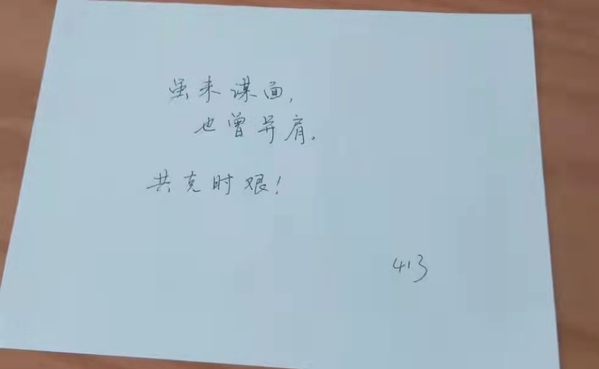 虽未谋面，
也曾并肩。
共克时艰！
413